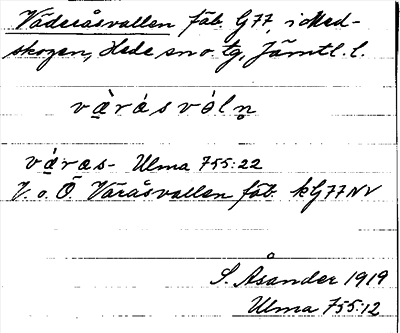 Väderåsvallen fäb. G77, i Med-
skogen, Hede sn o. tg, Jämtl. l.
våràsvóln̥
vàras- Ulma 755:22
V. o. Ö. Väråsvallen fäb. kG77NV
S. Åsander 1919
Ulma 755:12